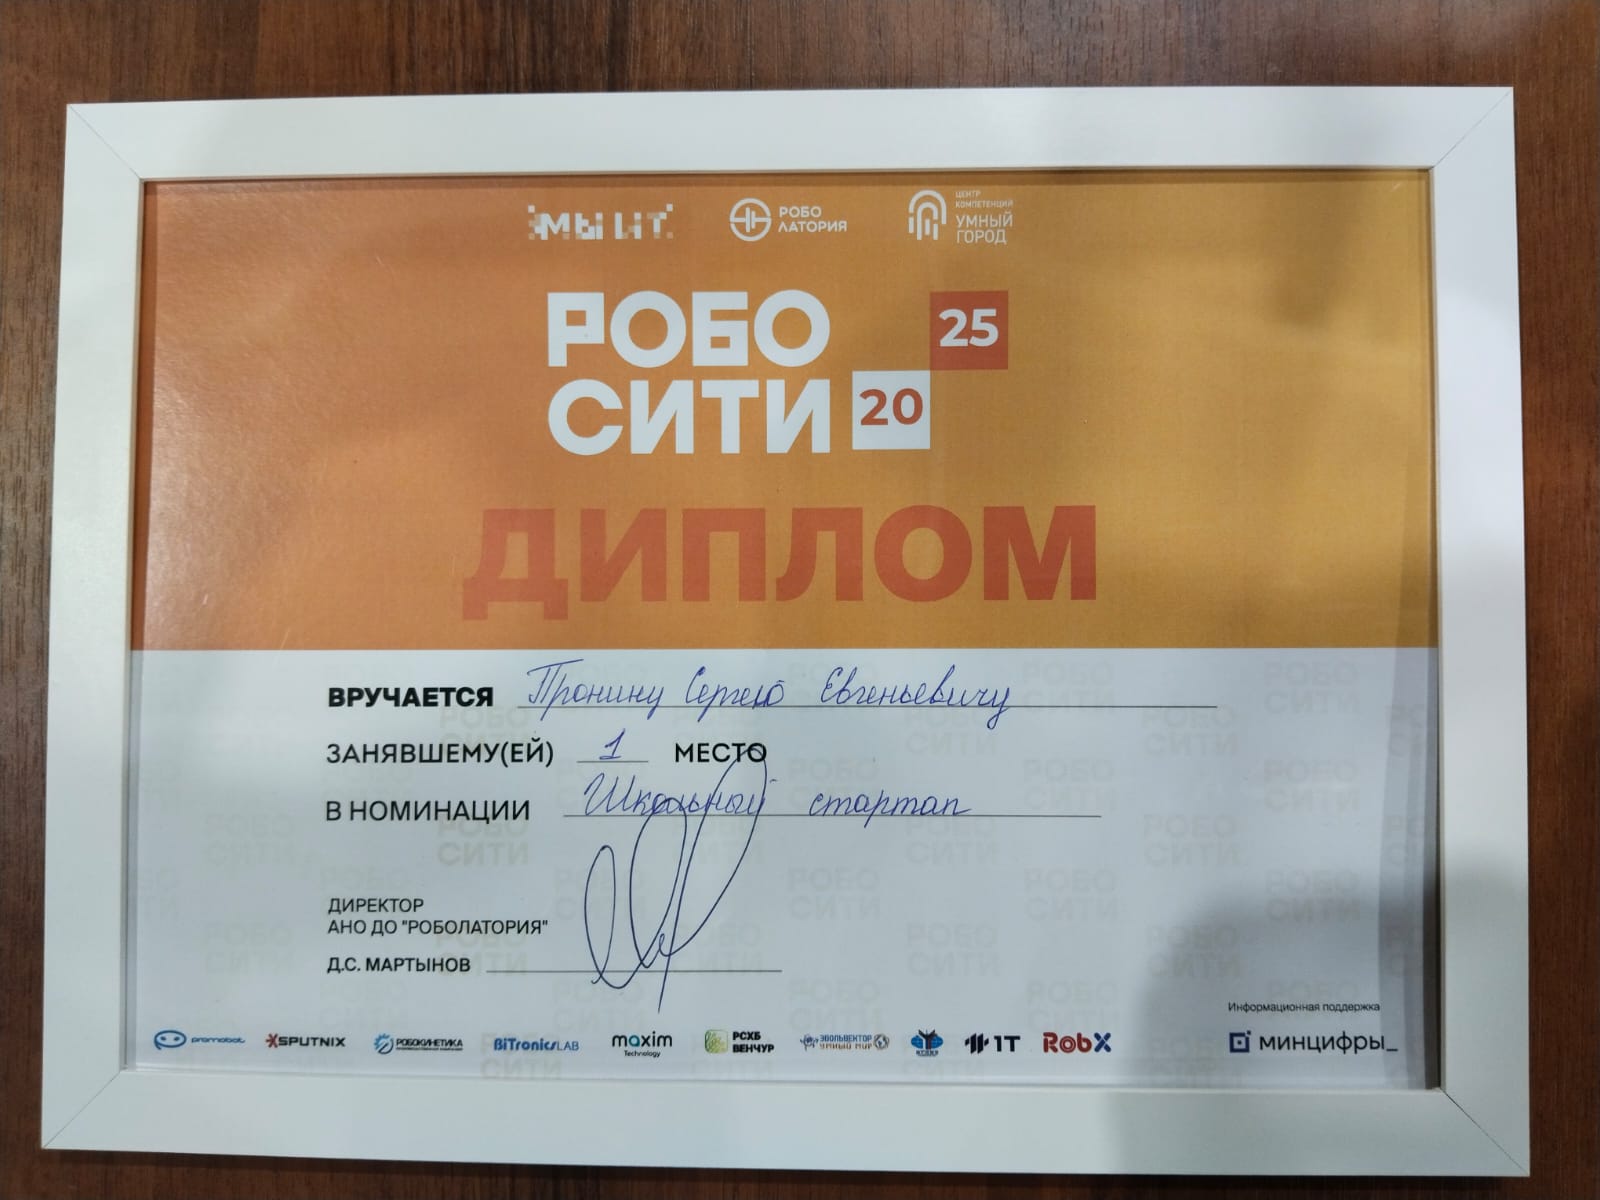 МЫ ИТ
РОБО
ЛАТОРИЯ
ЦЕНТР
КОМПЕТЕНЦИЙ
УМНЫЙ
ГОРОД
РОБО 25
СИТИ 20
ДИПЛОМ
ВРУЧАЕТСЯ Пронину Сергею Евгеньевичу
ЗАНЯВШЕМУ(ЕЙ) 1 МЕСТО
В НОМИНАЦИИ Школьный стартап
ДИРЕКТОР
АНО ДО "РОБОЛАТОРИЯ"
Д.С. МАРТЫНОВ
Информационная поддержка
promobot SPUTNIX РОБОКИНЕТИКА BiTronicsLAB maxim Technology РСХБ ВЕНЧУР ЭВОЛЬВЕКТОР УМНЫЙ МИР 1T RobX минцифры_